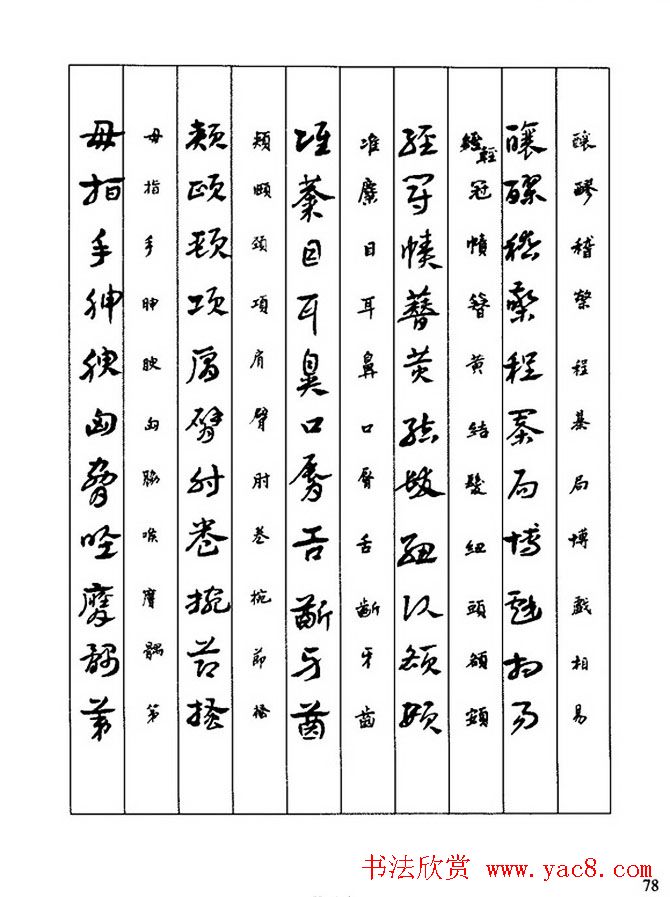 釀醪稽檠程棊局博戲相易
釀醪稽檠程棊局博戲相易
經輕冠幘簪黃結髮紐頭額頞
經冠幘簪黃結髮紐頭額頞
准麋目耳鼻口脣舌齗牙齒
准麋目耳鼻口脣舌齗牙齒
頰頤頸項肩臂肘卷捥節搔
頰頤頸項肩臂肘卷捥節搔
母指手胂腴匈脇喉膺髃第
母指手胂腴匈脇喉膺髃第
书法欣赏 www.yac8.com
78